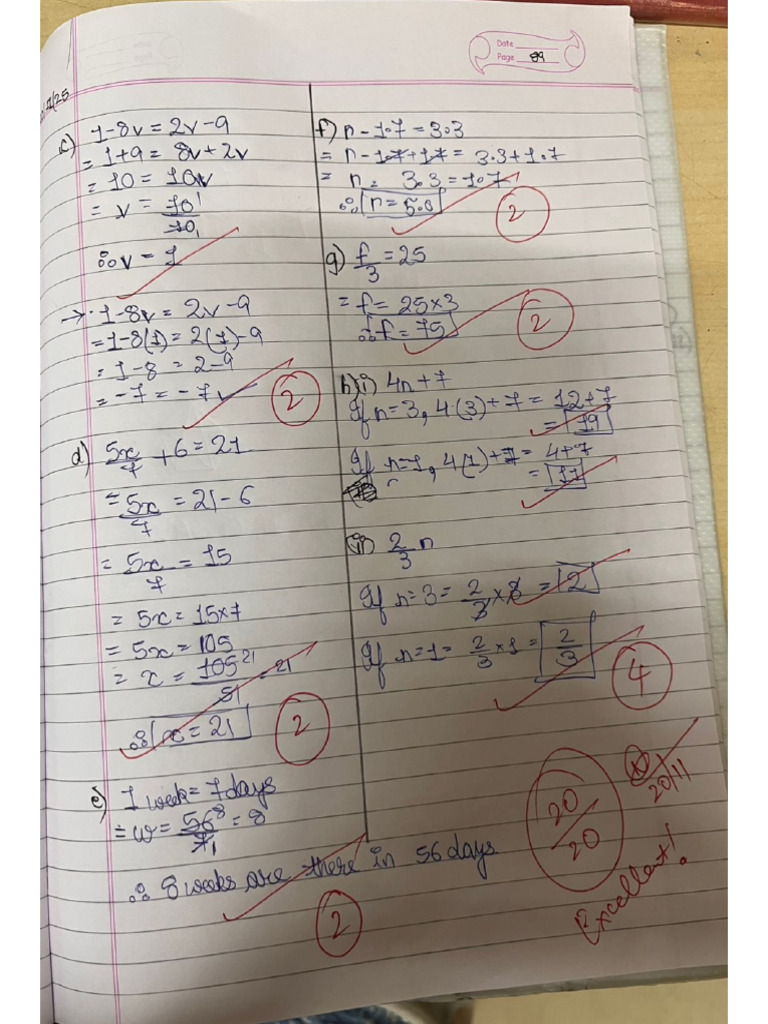 Date
Page 89
c) 1-8v = 2v-9
= 1+9 = 8v+2v
= 10 = 10v
= v = 10 1
10 1
∴ v = 1
→ 1-8v = 2v-9
= 1-8(1) = 2(1)-9
= 1-8 = 2-9
= -7 = -7
2
d) 5x/7 + 6 = 21
= 5x/7 = 21-6
= 5x/7 = 15
= 5x = 15x7
= 5x = 105
= x = 105 21 = 21
5 1
∴ x = 21
2
e) 1 week = 7 days
= w = 56 8 = 8
7 1
∴ 8 weeks are there in 56 days
2
f) n - 1.7 = 3.3
= n - 1.7 + 1.7 = 3.3 + 1.7
= n = 3.3 = 1.7
∴ n = 5.0
2
g) f/3 = 25
= f = 25x3
∴ f = 75
2
h) i) 4n+7
If n=3, 4(3)+7 = 12+7
= 19
If n=1, 4(1)+7 = 4+7
= 11
ii) 2/3 n
If n=3 = 2/3 x 3 = 2
If n=1 = 2/3 x 1 = 2/3
4
20/20
20/11
Excellent!